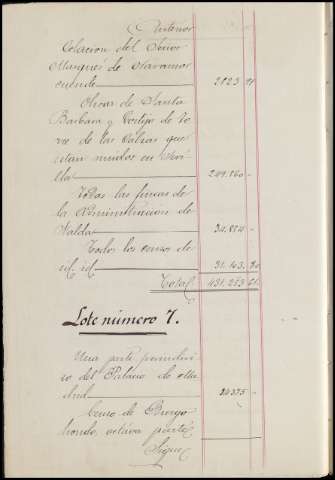 Anterior
Celacion del Señor
Marqués de Navamor
cuende 2823 91
Olivar de Santa
Barbara y Cortijo de To
rre de las Salvas que
estan unidos en Sevi
lla 249.860 -
Todas las fincas de
la Administracion de
Nalda 34.884 -
Todos los censos de
id. id. 31.143 90
Total 431.253 61
Lote número 7.
Una parte proindivi
so del Palacio de Ma
drid 24375 -
Censo de Burgo
hondo, octava parte
Sigue